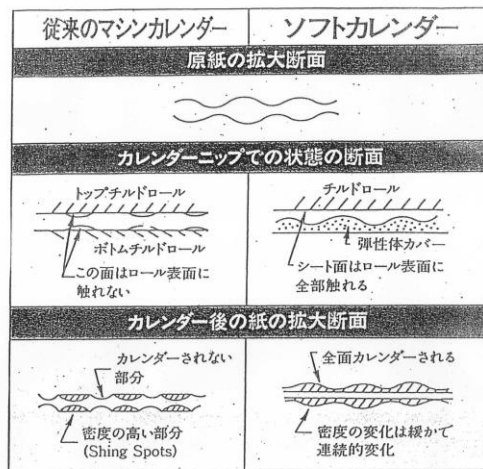 従来のマシンカレンダー
ソフトカレンダー
原紙の拡大断面
カレンダーニップでの状態の断面
トップチルドロール
ボトムチルドロール
この面はロール表面に
触れない
チルドロール
弾性体カバー
シート面はロール表面に
全部触れる
カレンダー後の紙の拡大断面
カレンダーされない
部分
密度の高い部分
(Shing Spots)
全面カレンダーされる
密度の変化は緩かで
連続的変化